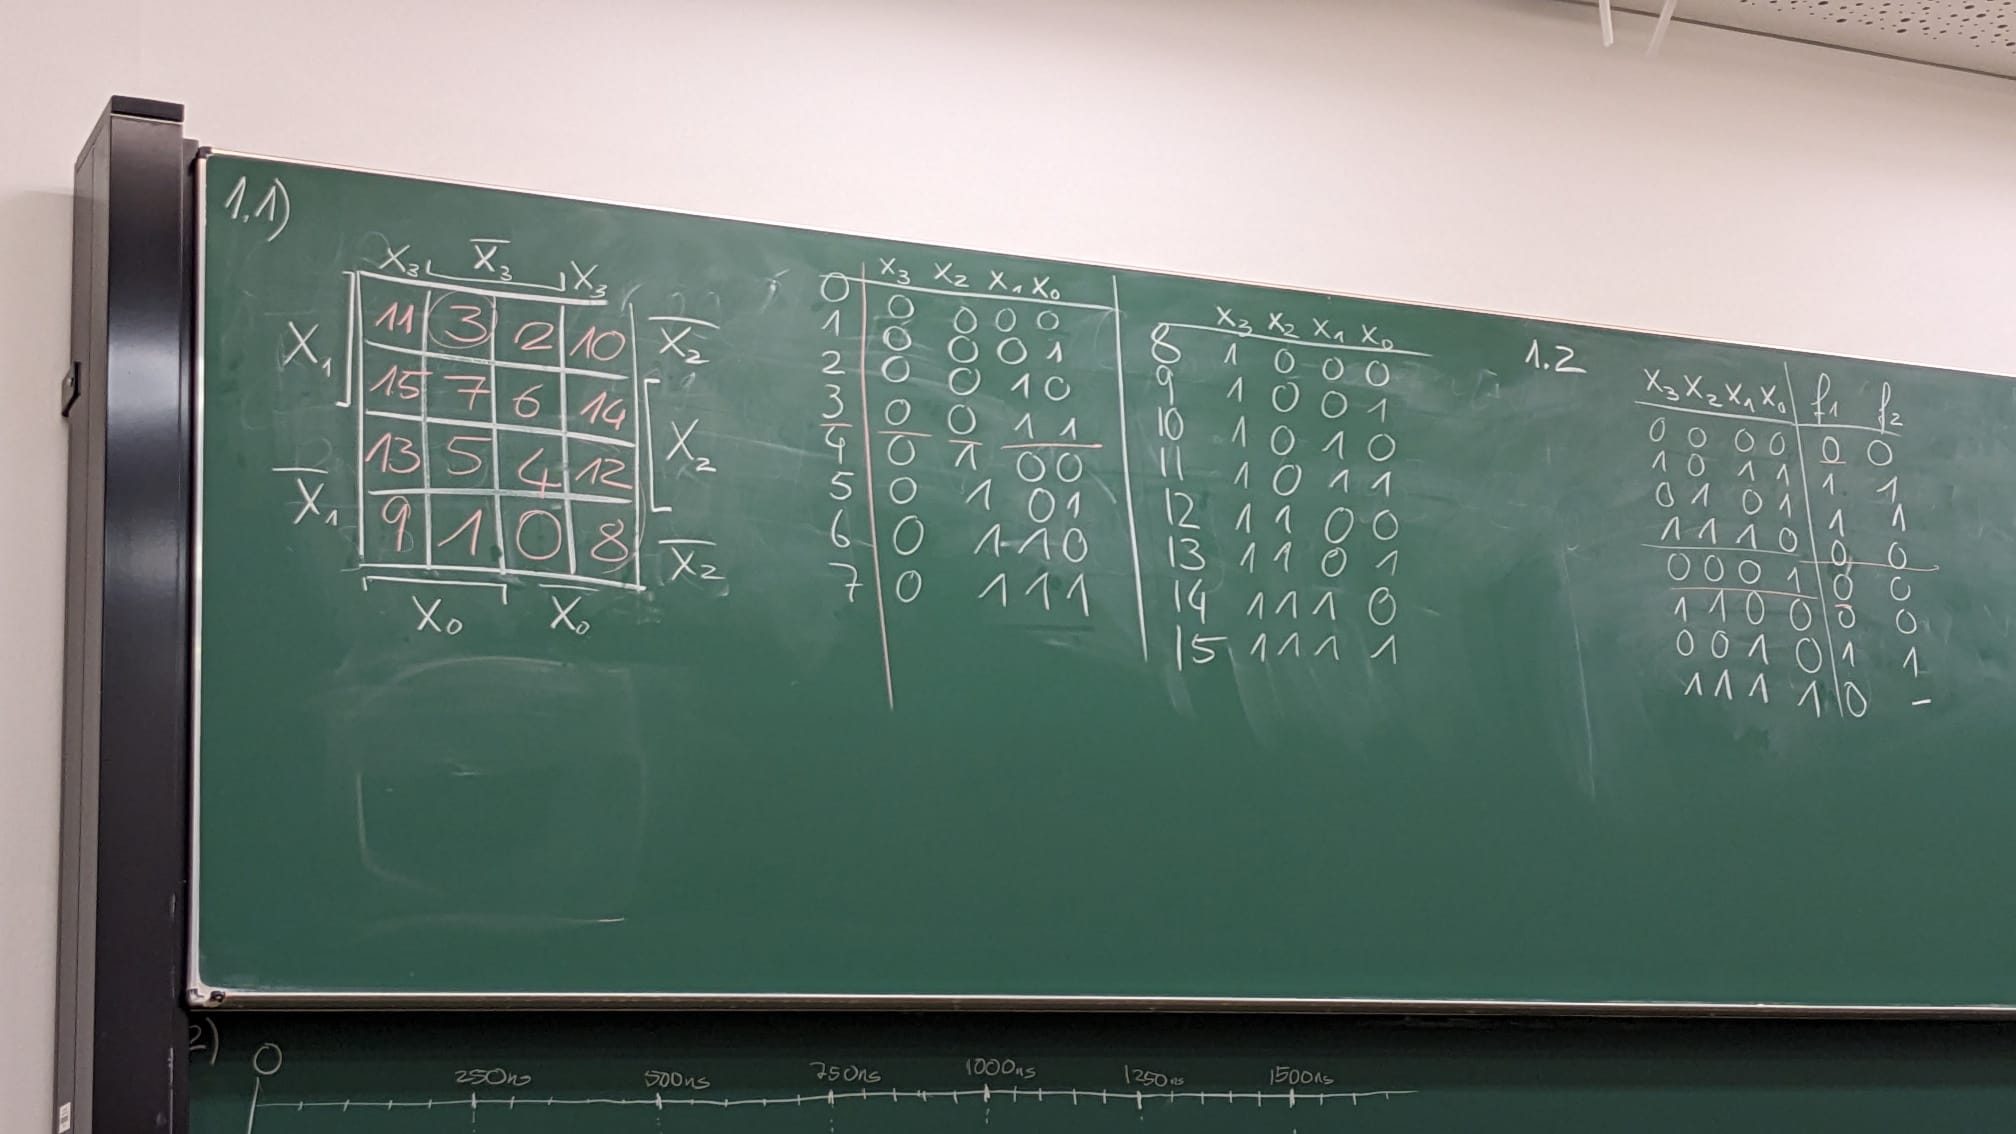 1.1)
X₃ X̅₃ X₃
X₁ 11 3 2 10 X̅₂
15 7 6 14 X₂
X̅₁ 13 5 4 12
9 1 0 8 X̅₂
X₀ X̅₀
X₃ X₂ X₁ X₀
0 0 0 0 0
1 0 0 0 1
2 0 0 1 0
3 0 0 1 1
4 0 1 0 0
5 0 1 0 1
6 0 1 1 0
7 0 1 1 1
X₃ X₂ X₁ X₀
8 1 0 0 0
9 1 0 0 1
10 1 0 1 0
11 1 0 1 1
12 1 1 0 0
13 1 1 0 1
14 1 1 1 0
15 1 1 1 1
1.2
X₃ X₂ X₁ X₀ f₁ f₂
0 0 0 0 0 0
1 0 1 1 1 1
0 1 0 1 1 1
1 1 1 0 0 0
0 0 0 1 0 0
1 1 0 0 0 0
0 0 1 0 1 1
1 1 1 1 0 -
2)
0 250ns 500ns 750ns 1000ns 1250ns 1500ns